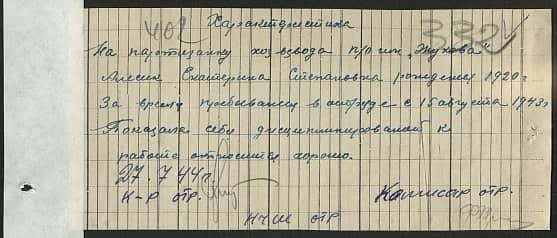 402
332
Характеристика
На партизанку хозвзвода п/о им. „Жукова"
Екатерина Степановна рождения 1920 г
За время пребывания в отряде с 15 августа 1943 г
Показала себя дисциплинированой к
работе относится хорошо.
27.7 44 г.
К-р отр.
Комисар отр.
НЧШ отр